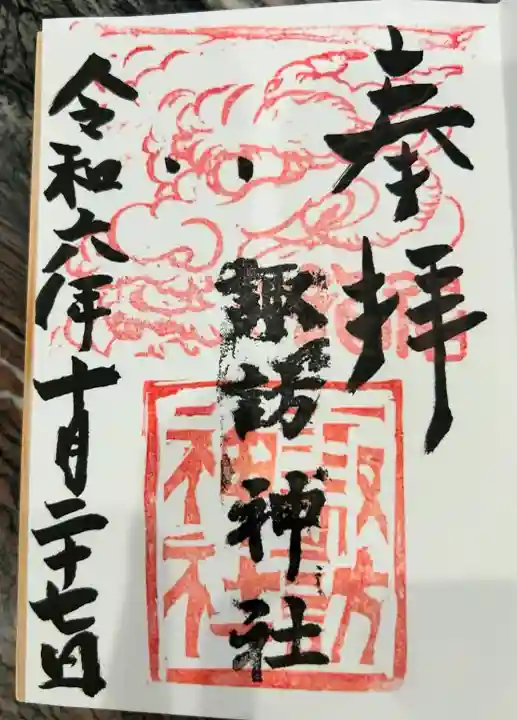 奉拝
諏訪神社
諏訪神社
令和六年十月二十七日